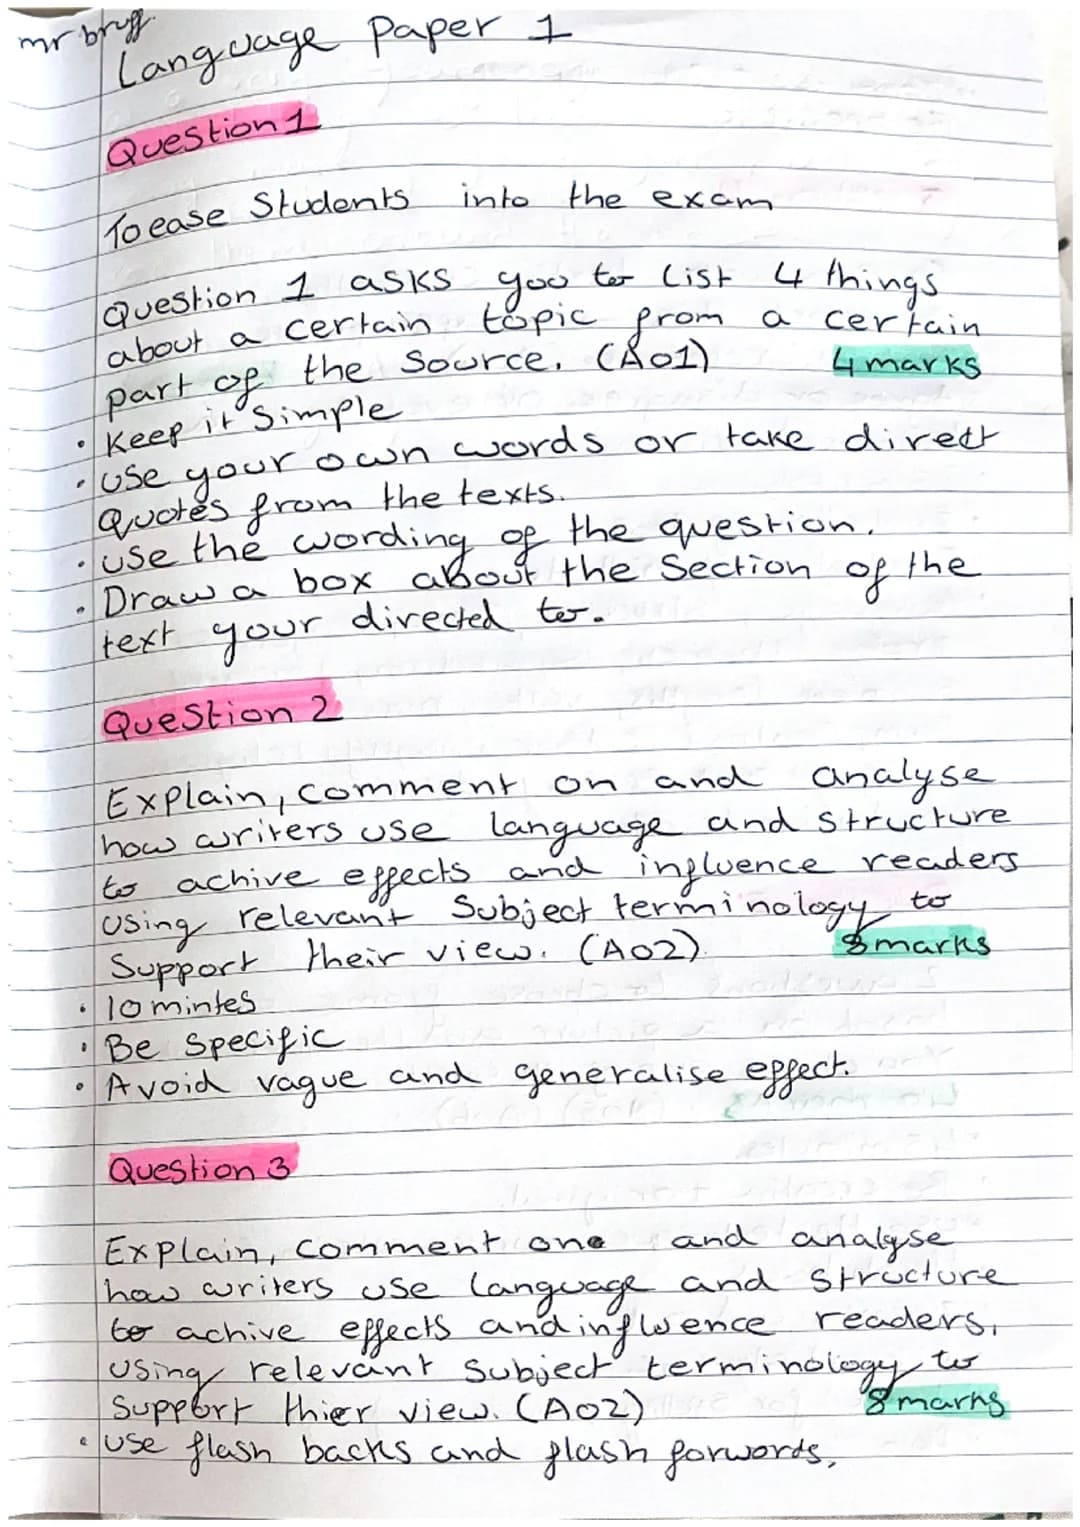 mr bruff
Language Paper 1
Question 1
To ease Students into the exam
Question 1 asks you to List 4 things
about a certain topic from a certain
part of the Source. (Ao1) 4 marks
• Keep it Simple
• Use your own words or take direct
Quotes from the texts.
• use the wording of the question.
• Draw a box about the Section of the
text your directed to.
Question 2
Explain, comment on and analyse
how writers use language and structure
to achive effects and influence readers
Using relevant Subject terminology to
Support their view. (AO2). 8 marks
• 10 mintes
• Be Specific
• Avoid vague and generalise effect.
Question 3
Explain, comment one and analyse
how writers use language and structure
to achive effects and influence readers,
Using relevant Subject terminology to
Support thier view. (AO2) 8 marks
• use flash backs and flash forwords,